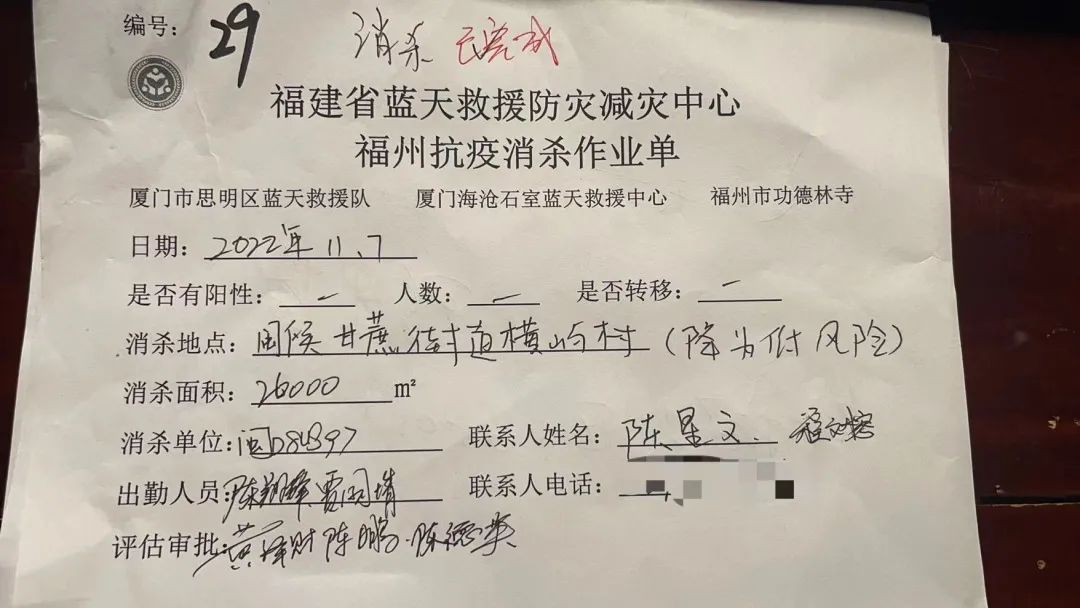 编号: 29 消杀 已完成
福建省蓝天救援防灾减灾中心
福州抗疫消杀作业单
厦门市思明区蓝天救援队 厦门海沧石室蓝天救援中心 福州市功德林寺
日期: 2022年 11.7
是否有阳性: — 人数: — 是否转移: —
消杀地点: 闽侯甘蔗街道横屿村（降为低风险）
消杀面积: 26000 m²
消杀单位: 闽D84397 联系人姓名: 陈星文.
出勤人员: 联系人电话:
评估审批: 黄泽财 陈鹏. 陈德英